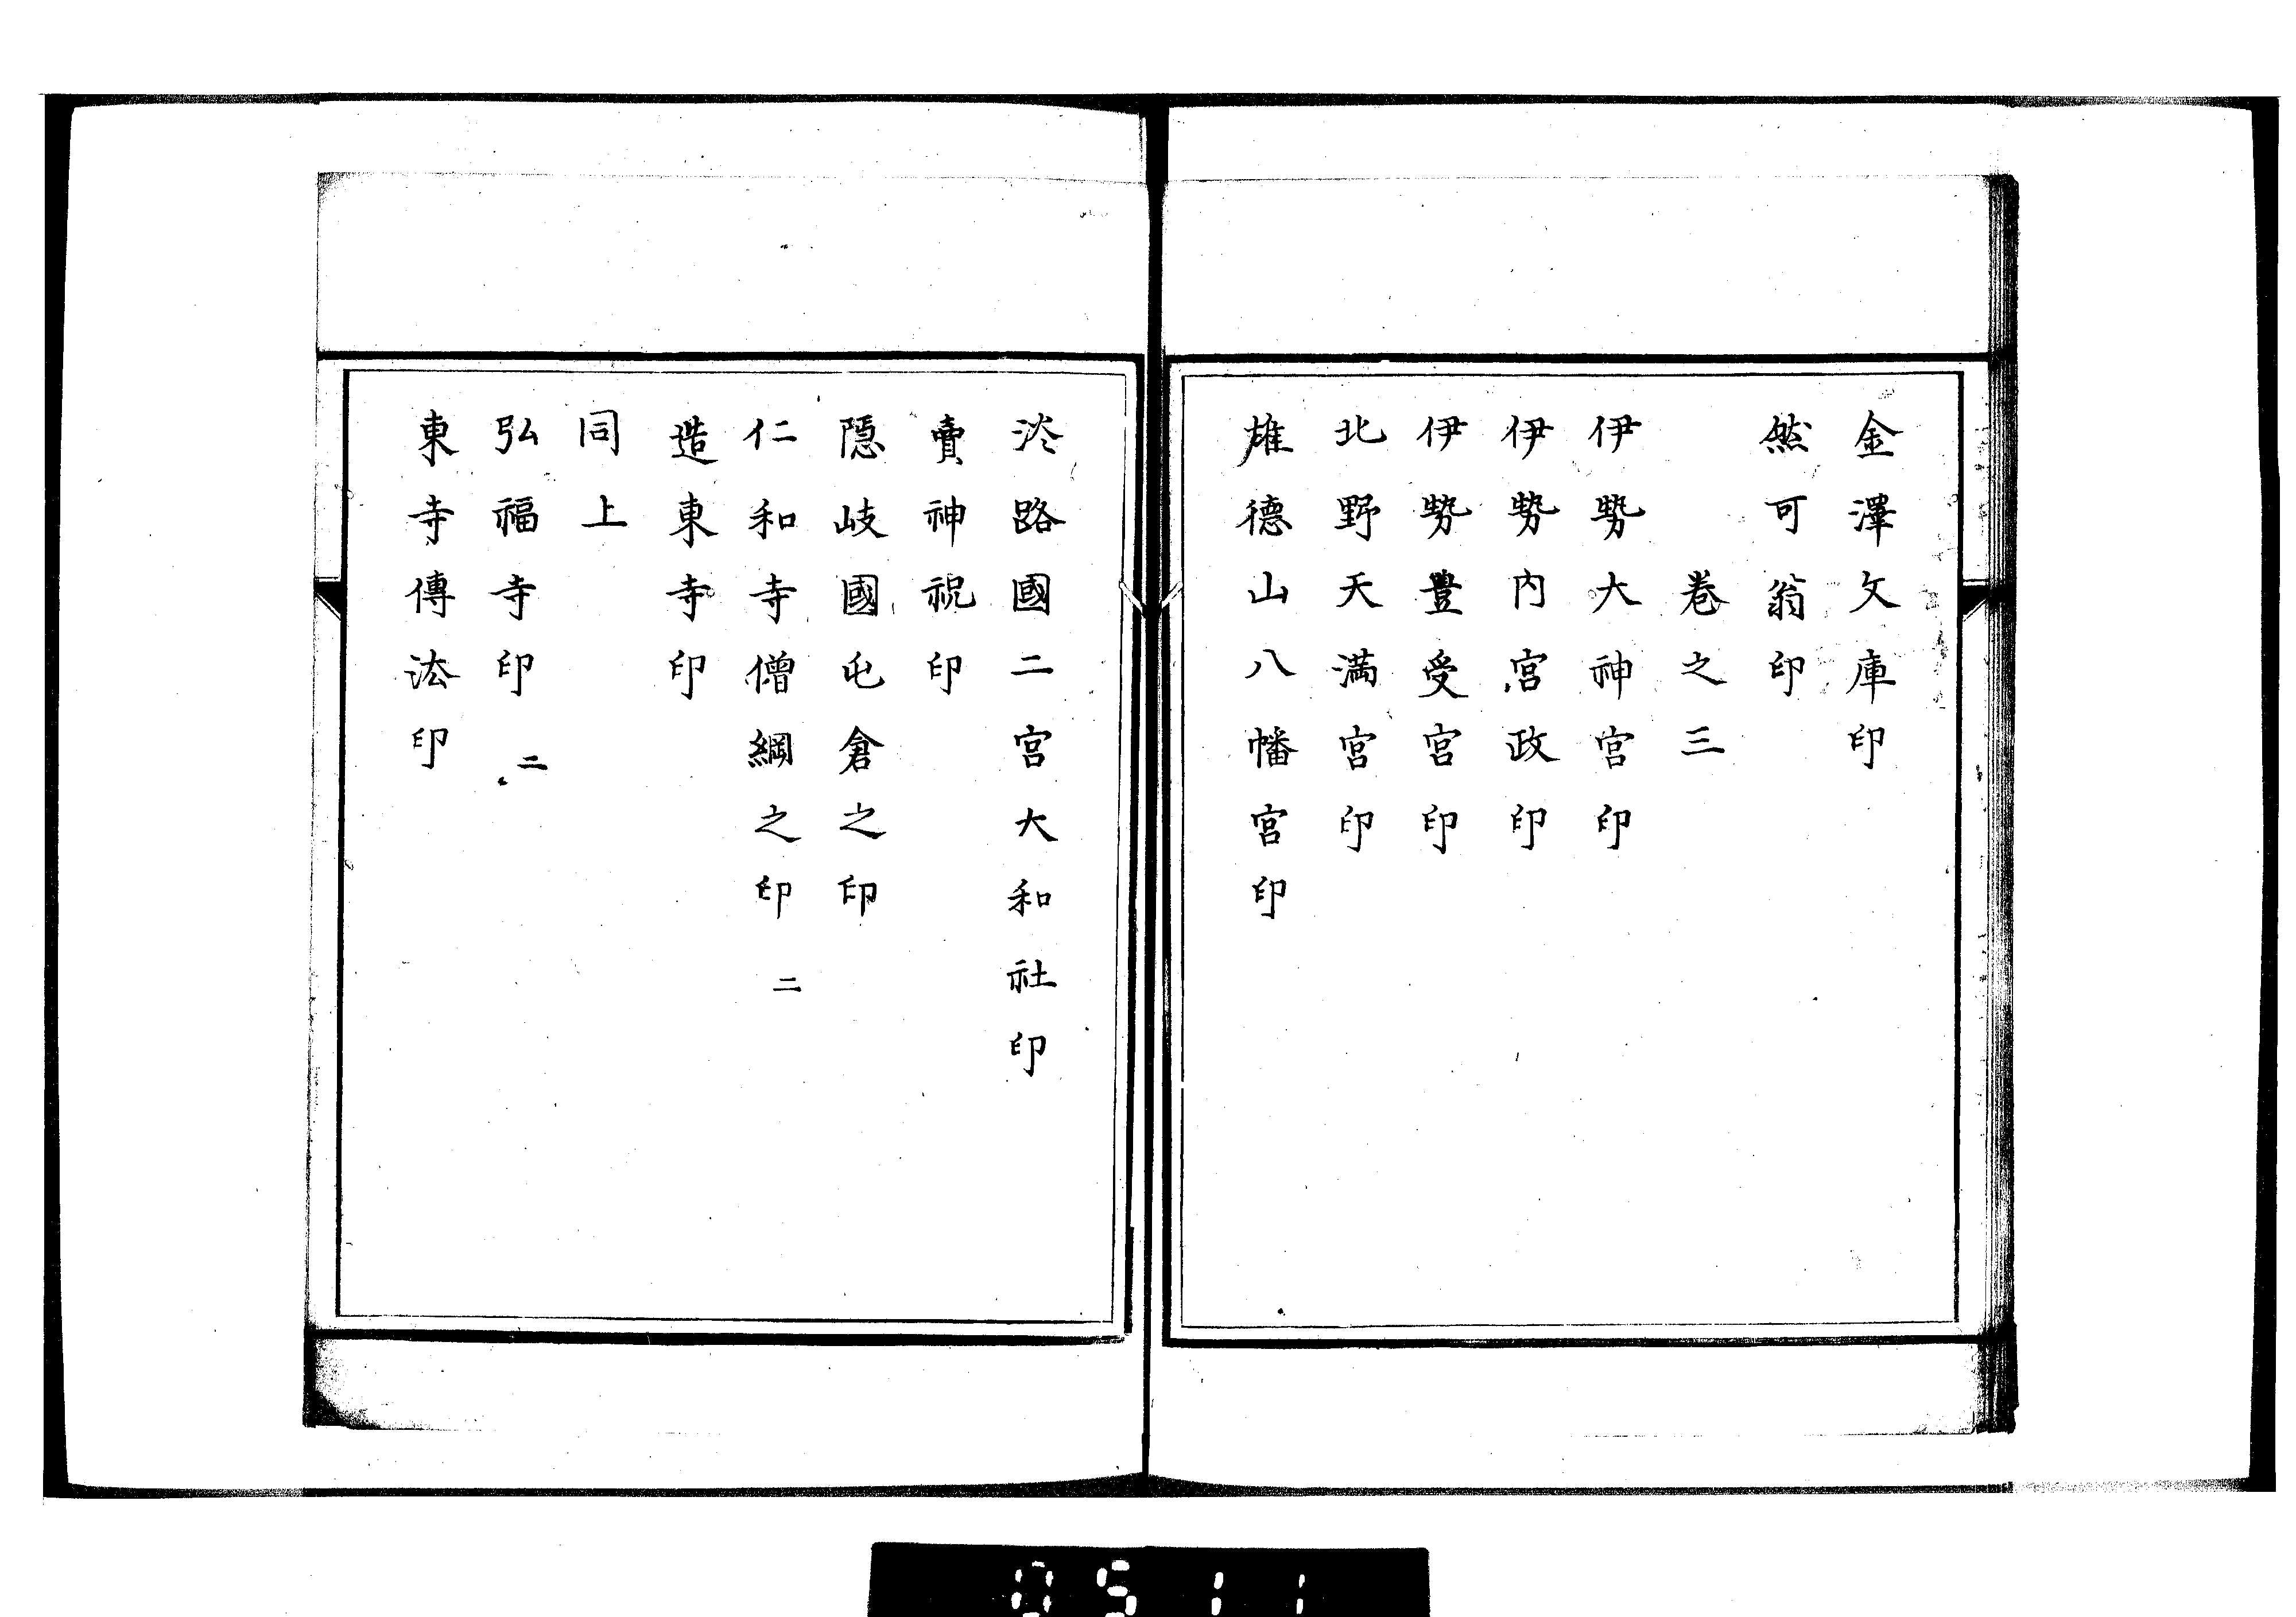 金澤文庫印
然可翁印
巻之三
伊勢大神宮印
伊勢内宮政印
伊勢豊受宮印
北野天満宮印
雄徳山八幡宮印
淡路國二宮大和社印
賣神祝印
隠岐國屯倉之印
仁和寺僧綱之印 二
造東寺印
同上
弘福寺印 二
東寺傳法印
0511